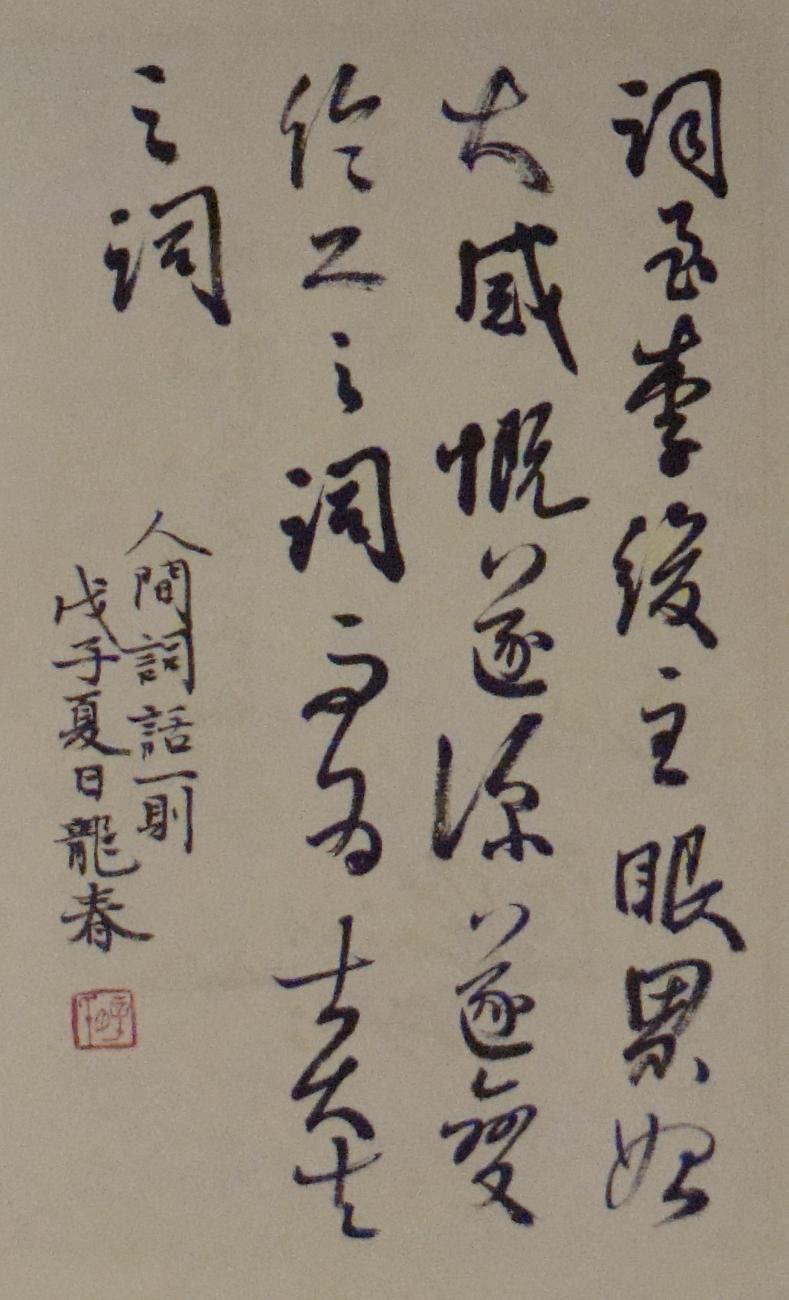 詞至李後主眼界始
大感慨遂深遂變
伶工之詞而為士大夫
之詞
人間詞話一則
戊子夏日龍春